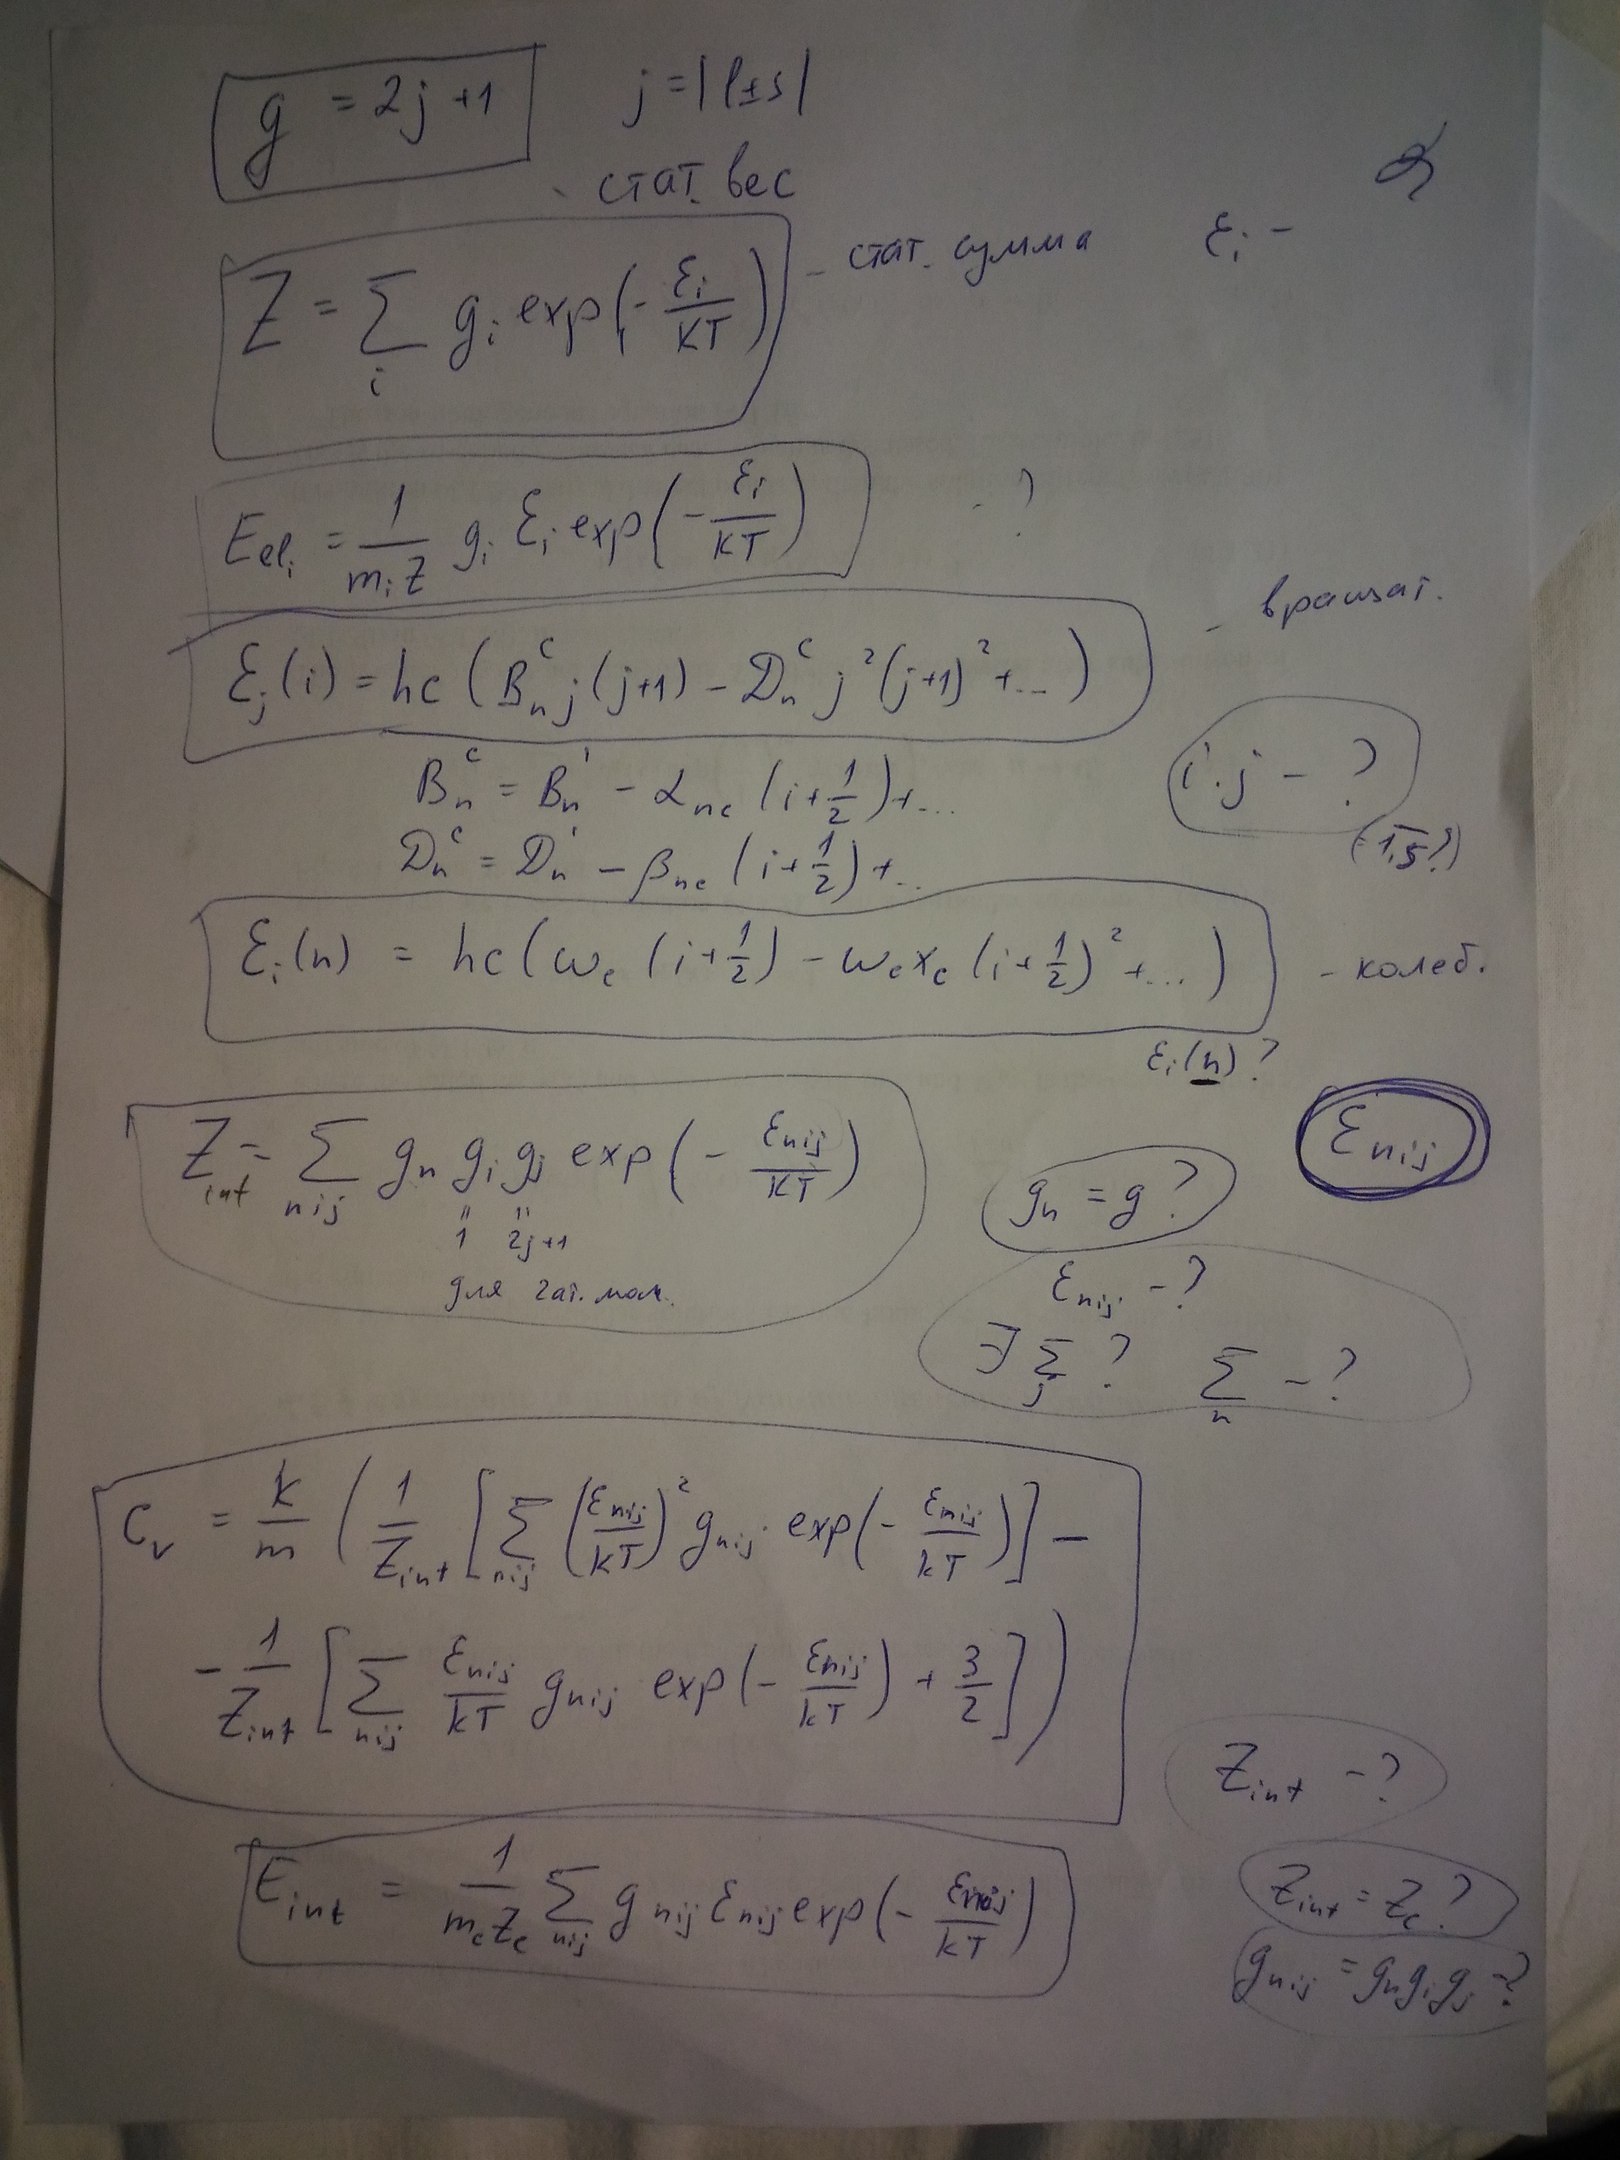 g = 2j+1 j = |l±s|
- стат. вес
Z = Σ_i g_i exp(-ε_i/kT) - стат. сумма ε_i -
E_el_i = 1/(m_i Z) g_i ε_i exp(-ε_i/kT) - ?
ε_j(i) = hc (B_n^c j(j+1) - D_n^c j²(j+1)² + ...) - вращат.
B_n^c = B_n' - α_nc (i+1/2) + ... i, j - ?
D_n^c = D_n' - β_nc (i+1/2) + ... (1,5?)
ε_i(n) = hc(ω_c (i+1/2) - ω_c x_c (i+1/2)² + ...) - колеб.
ε_i(n) ?
Z_int = Σ_nij g_n g_i g_j exp(-ε_nij/kT) ε_nij
" " g_n = g ?
1 2j+1
для 2ат. мол. ε_nij - ?
∃ Σ_j ? Σ_n - ?
C_v = k/m (1/Z_int [Σ_nij (ε_nij/kT)² g_nij exp(-ε_nij/kT)] -
- 1/Z_int [Σ_nij ε_nij/kT g_nij exp(-ε_nij/kT) + 3/2])
Z_int - ?
E_int = 1/(m_c Z_c) Σ_nij g_nij ε_nij exp(-ε_nij/kT) Z_int = Z_c ?
g_nij = g_n g_i g_j - ?